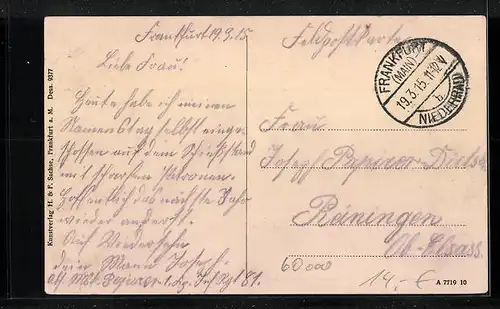 Frankfurt 19.3.15
Liebe Frau!
Heute habe ich meinen
Namenstag selbst einge-
schossen auf dem Schießstand
mit scharfen Patronen.
Hoffentlich das nächste Jahr
wieder anders.
Auf Wiedersehn
dein Mann Josef.
Feldpostkarte
FRANKFURT
(MAIN)
19.3.15. 11-12 V
b.
NIEDERRAD
Frau
Josef
Reiningen
Ob-Elsass.
60000
14.-€
Kunstverlag H. & F. Sachse, Frankfurt a. M. Dess. 9377
A 7719 10